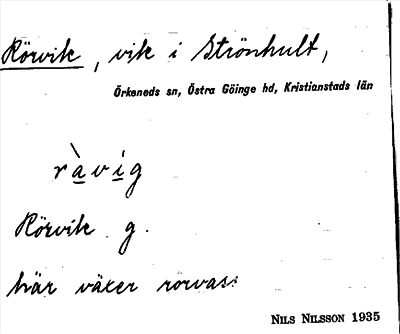 Rörvik, vik i Strönhult,
Örkeneds sn, Östra Göinge hd, Kristianstads län
ràvig
Rörvik g.
här växer rörvass
NILS NILSSON 1935